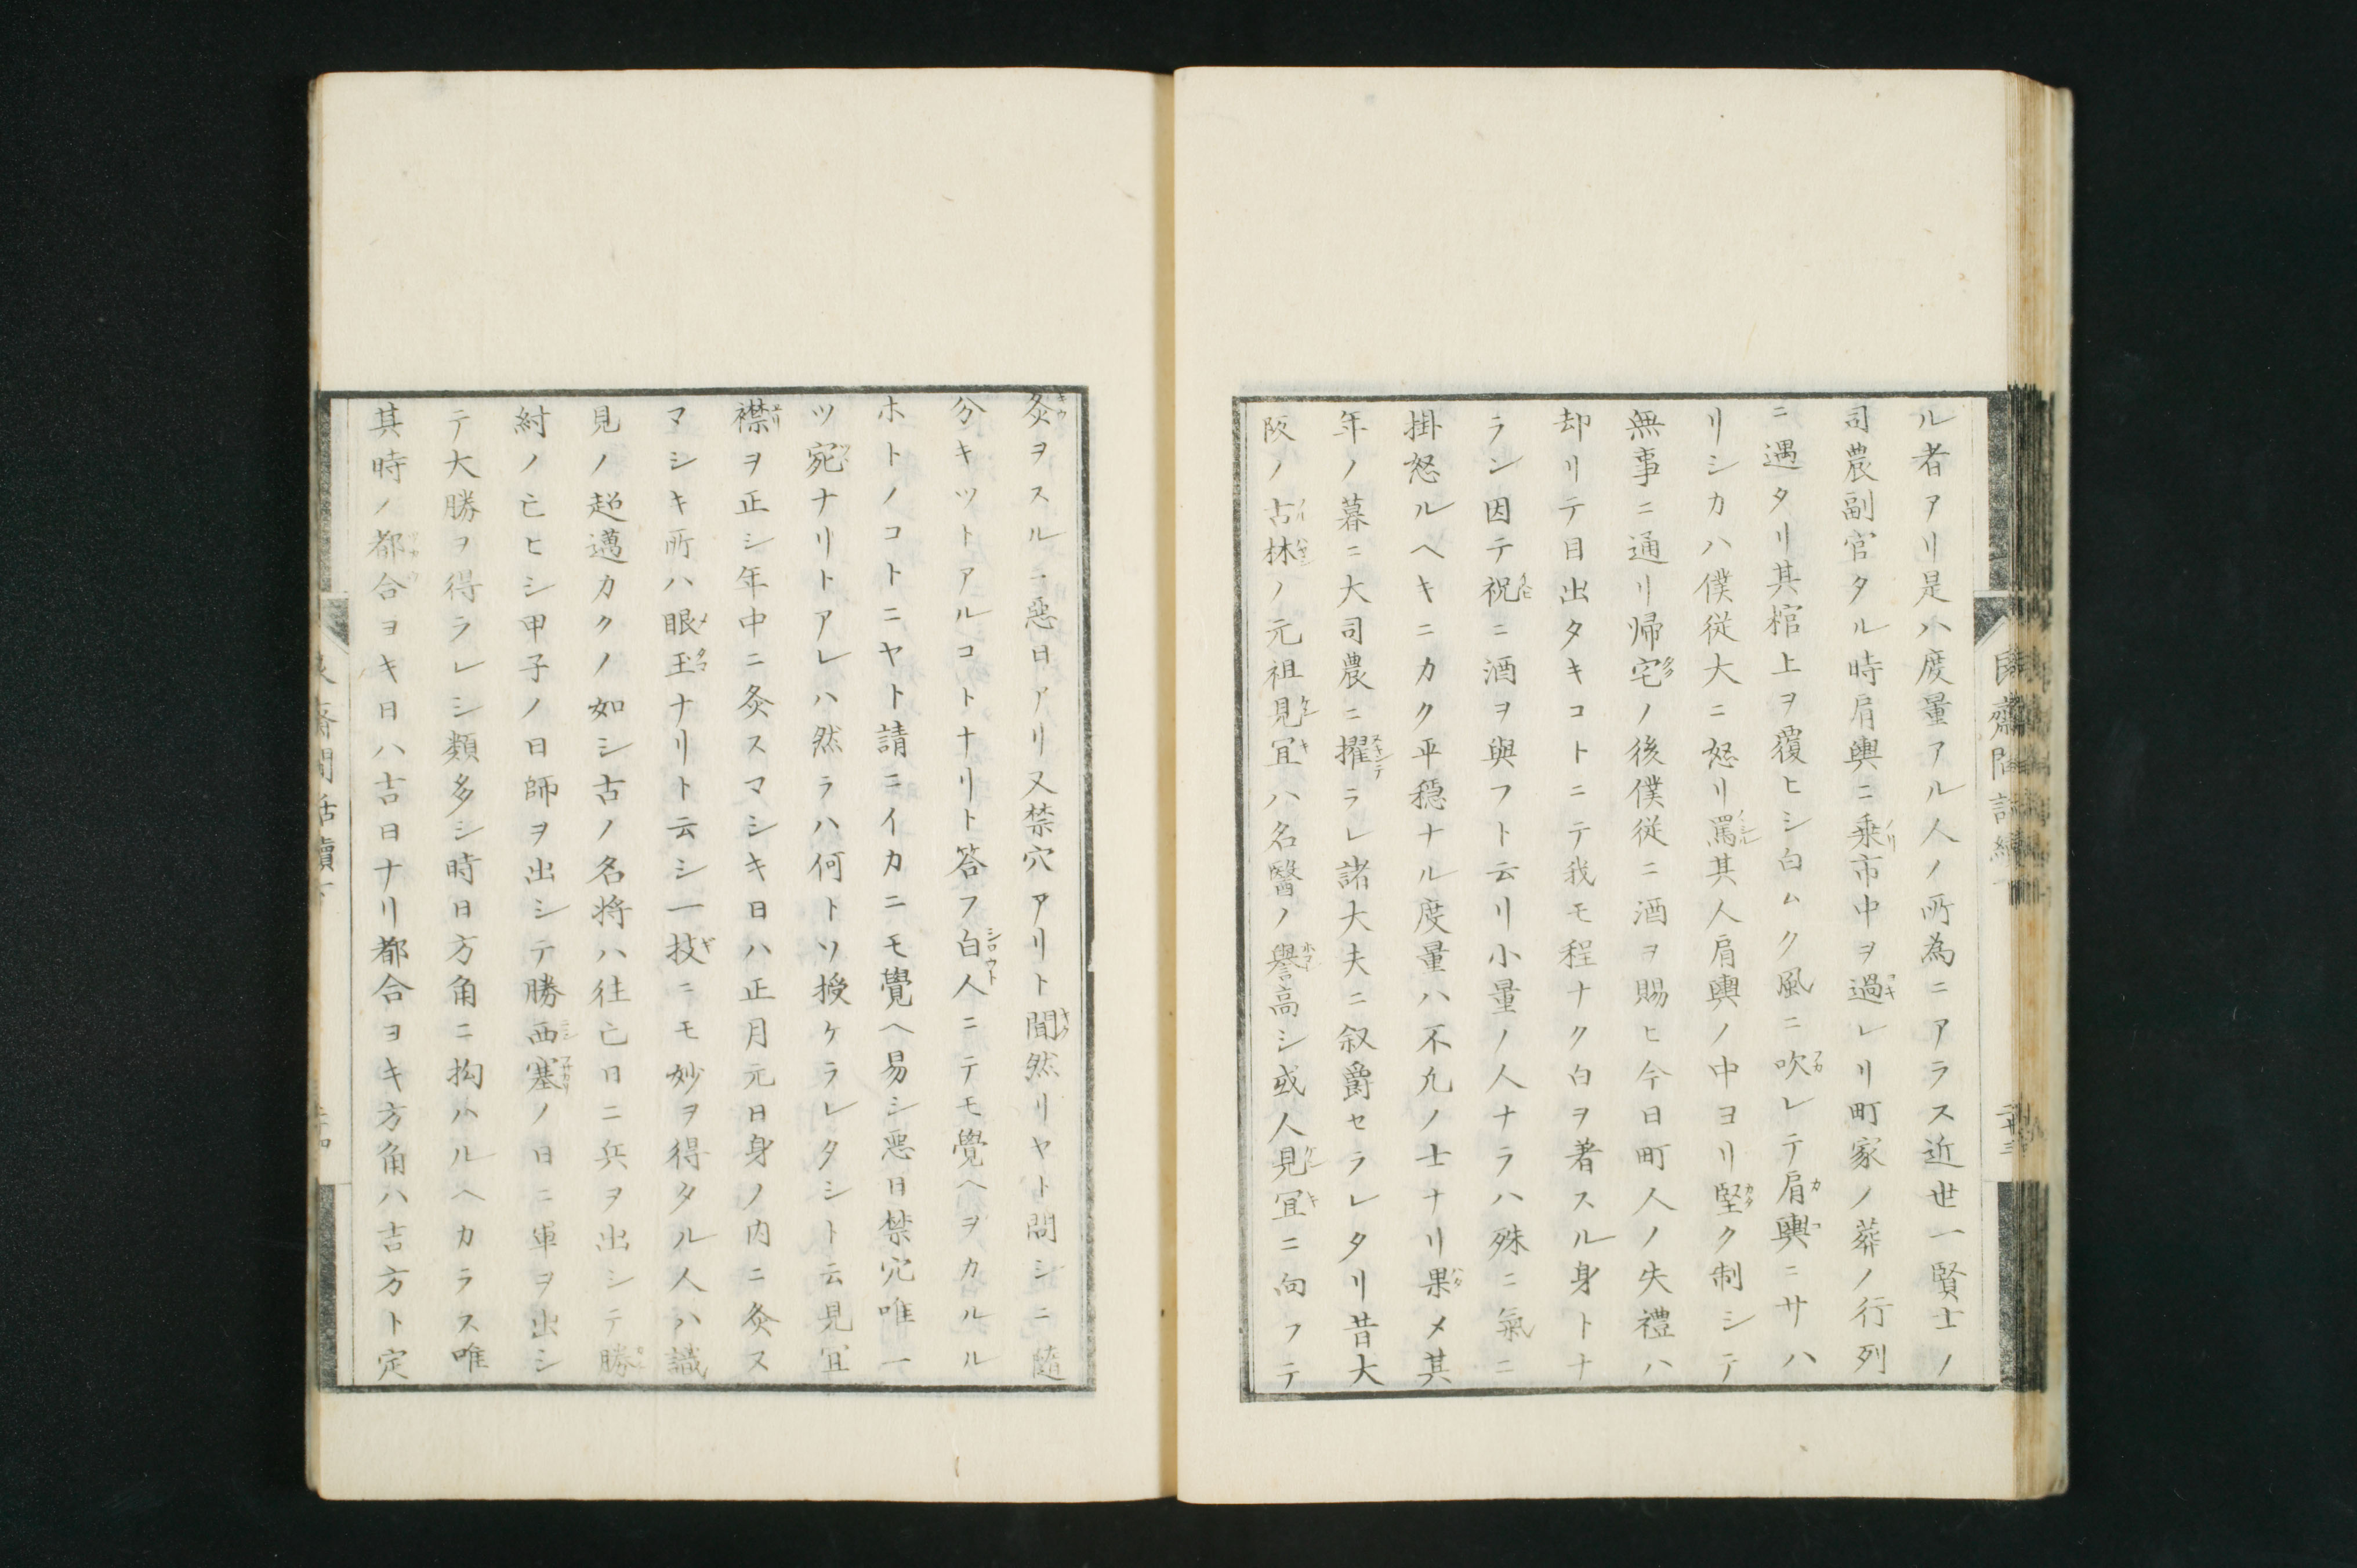 ル者アリ是ハ度量アル人ノ所為ニアラス近世一賢士ノ
司農副官タル時肩輿ニ乗市中ヲ過レリ町家ノ葬ノ行列
ニ遇タリ其棺上ヲ覆ヒシ白ムク風ニ吹レテ肩輿ニサハ
リシカハ僕従大ニ怒リ罵其人肩輿ノ中ヨリ堅ク制シテ
無事ニ通リ帰宅ノ後僕従ニ酒ヲ賜ヒ今日町人ノ失禮ハ
却リテ目出タキコトニテ我モ程ナク白ヲ著スル身トナ
ラン因テ祝ニ酒ヲ與フト云リ小量ノ人ナラハ殊ニ氣ニ
掛怒ルヘキニカク平穏ナル度量ハ不凡ノ士ナリ果メ其
年ノ暮ニ大司農ニ擢ラレ諸大夫ニ叙爵セラレタリ昔大
阪ノ古林ノ元祖見宜ハ名醫ノ譽高シ或人見宜ニ向フテ
灸ヲスルニ惡日アリ又禁穴アリト聞然リヤト問シニ隨
分キツトアルコトナリト答フ白人ニテモ覺ヘヲカルル
ホトノコトニヤト請ニイカニモ覺ヘ易シ惡日禁穴唯一
ツ宛ナリトアレハ然ラハ何トソ授ケラレタシト云見宜
襟ヲ正シ年中ニ灸スマシキ日ハ正月元日身ノ内ニ灸ス
マシキ所ハ眼玉ナリト云シ一技ニモ妙ヲ得タル人ハ識
見ノ超邁カクノ如シ古ノ名将ハ往亡日ニ兵ヲ出シテ勝
紂ノ亡ヒシ甲子ノ日師ヲ出シテ勝西塞ノ日ニ軍ヲ出シ
テ大勝ヲ得ラレシ類多シ時日方角ニ拘ハルヘカラス唯
其時ノ都合ヨキ日ハ吉日ナリ都合ヨキ方角ハ吉方ト定